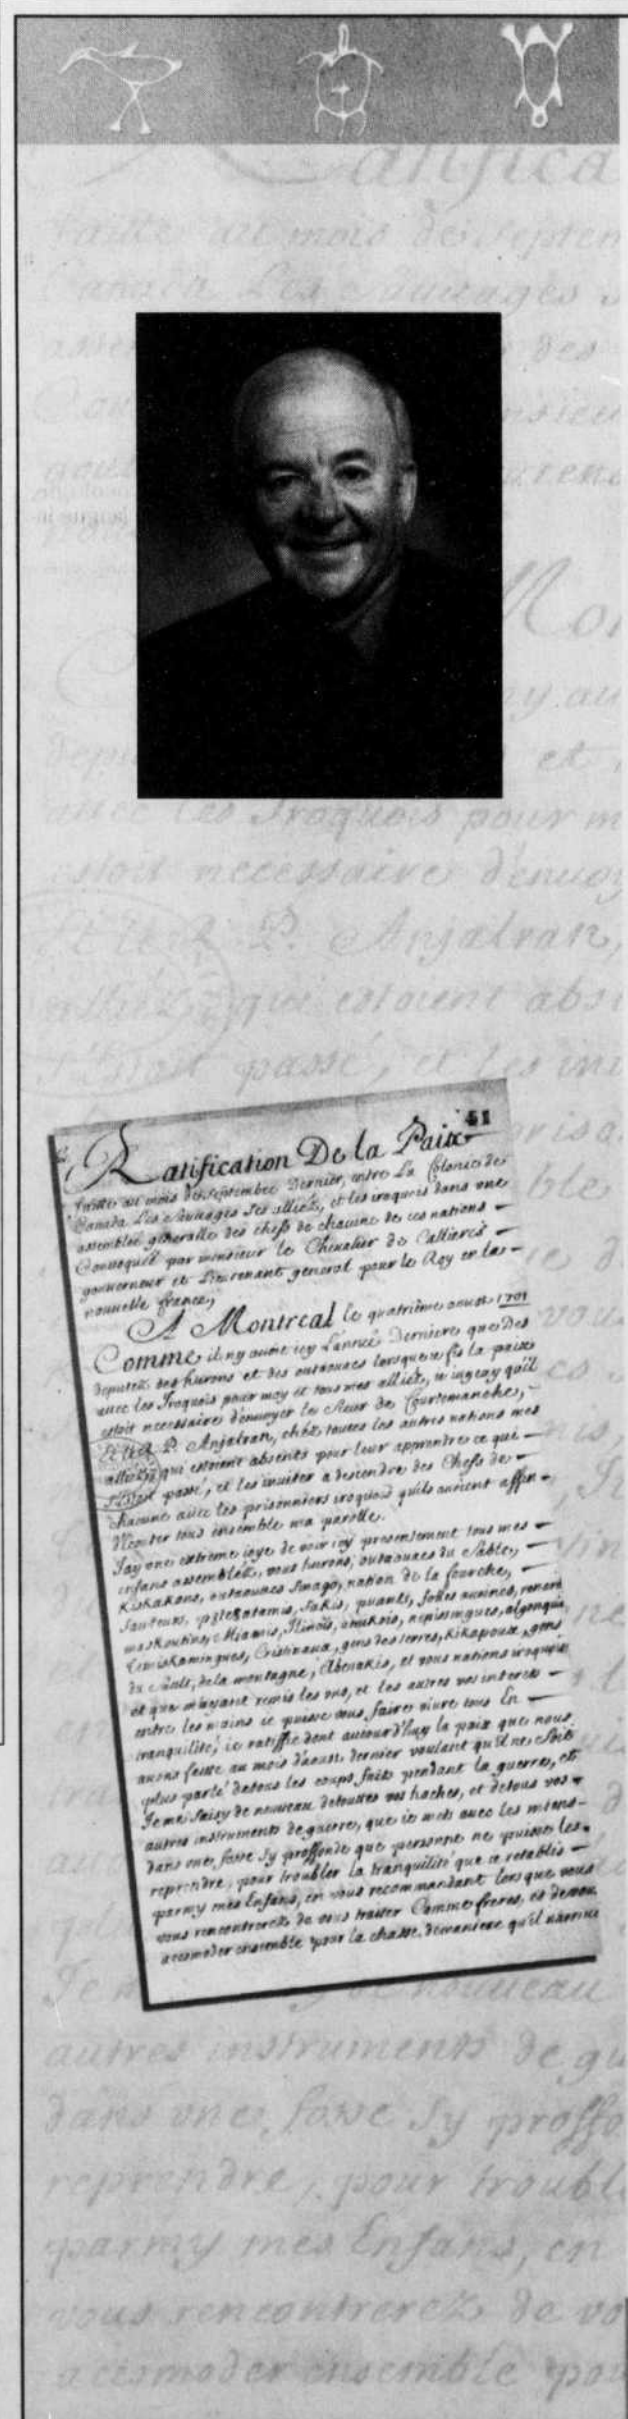 51
Ratification De la Paix
faitte au mois de Septembre Dernier, entre La Colonie de
Canada Les Sauvages ses alliez, et les iroquois dans une
assemblée generalle des chefs de chacune de ces nations
Convoquée par monsieur le Chevalier de Callieres
gouverneur et Lieutenant general pour le Roy en la
nouvelle france,
A Montreal le quatrième aoust 1701
Comme il ny avoit icy L'année Derniere que Des
deputez des hurons et des outaouacs lorsque je fis la paix
avec les Iroquois pour moy et tous mes alliez, je jugeay qu'il
estoit necessaire d'envoyer le Sieur de Courtemanche,
Et le R. P. Anjalran, chez toutes les autres nations mes
alliez qui estoient absents pour leur apprendre ce qui
s'estoit passé, et les inviter a descendre des Chefs de
chacune avec les prisonniers iroquois quils avoient affin
d'Ecouter tous ensemble ma parolle.
J'ay une extreme joye de voir icy presentement tous mes
enfans assemblez, vous hurons, outaouacs du Sable,
Kiskakons, outaouacs Sinago, nation de la fourche,
Sauteurs, Sakis, puants, folles avoines, renards
maskoutins, Miamis, Ilinois, nepissingues, algonquins
Temiskamingues, Cristinaux, gens des terres, Kikapoux, gens
du Sault, de la montagne, Abenakis, et vous nations iroquoises
et que m'ayant remis les uns, et les autres vos interets
entre les mains je puisse vous faire vivre tous En
tranquilité; je ratiffie dont aujourd'huy la paix que nous
avons faitte au mois d'aoust dernier voulant qu'il ne soit
plus parlé detous les coups faits pendant la guerre, et
Je me Saisy de nouveau detouttes vos haches, et detous vos
autres instruments de guerre, que je mets avec les miens
dans une fosse Sy proffonde que personne ne puisse les
reprendre, pour troubler la tranquilité que je retablis
parmy mes Enfans, en vous recommandant lorsque vous
vous rencontrerez de vous traiter Comme freres, et devous
accomoder ensemble pour la chasse, demaniere qu'il n'arrive